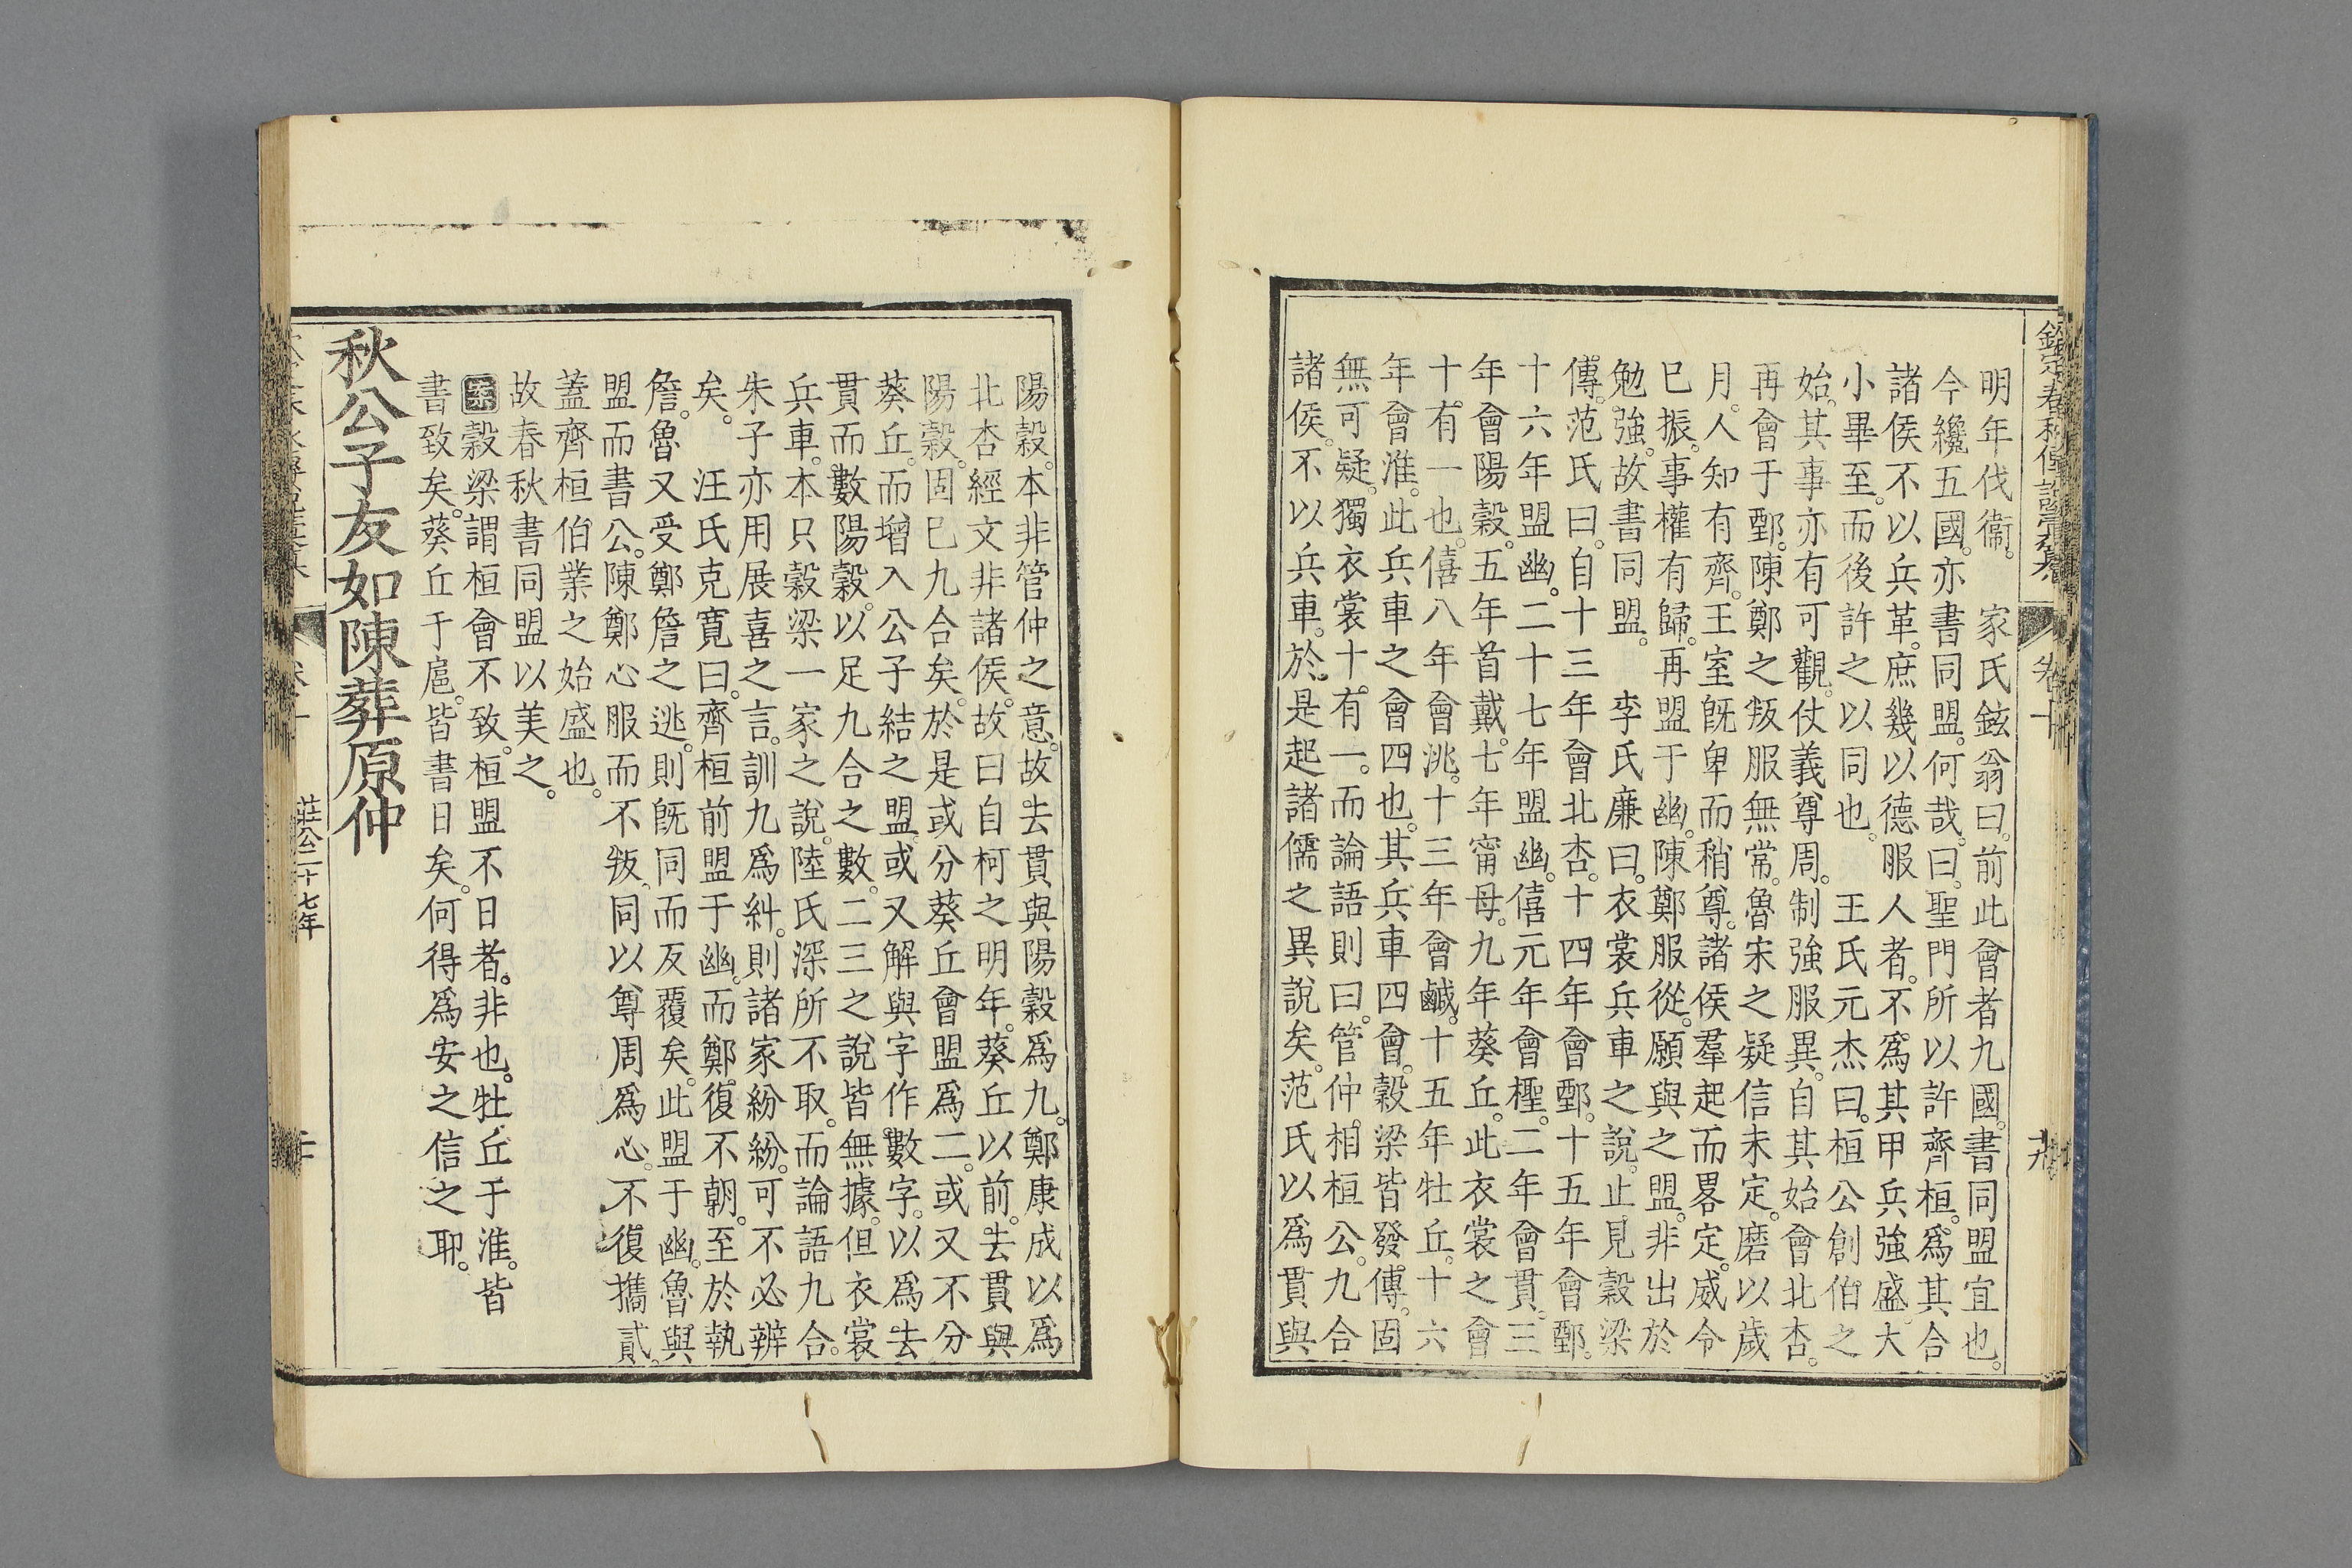 欽定春秋傳說彙纂
卷十
明年伐衞。　家氏鉉翁曰。前此會者九國。書同盟宜也。
今纔五國。亦書同盟。何哉。曰。聖門所以許齊桓。爲其合
諸侯不以兵革。庶幾以德服人者。不爲其甲兵強盛。大
小畢至。而後許之以同也。　王氏元杰曰。桓公創伯之
始。其事亦有可觀。仗義尊周。制強服異。自其始會北杏。
再會于鄄。陳鄭之叛服無常。魯宋之疑信未定。磨以歲
月。人知有齊。王室旣卑而稍尊。諸侯羣起而畧定。威令
已振。事權有歸。再盟于幽。陳鄭服從。願與之盟。非出於
勉強。故書同盟。　李氏廉曰。衣裳兵車之說。止見穀梁
傳。范氏曰。自十三年會北杏。十四年會鄄。十五年會鄄。
十六年盟幽。二十七年盟幽。僖元年會檉。二年會貫。三
年會陽穀。五年首戴。七年甯母。九年葵丘。此衣裳之會
十有一也。僖八年會洮。十三年會鹹。十五年牡丘。十六
年會淮。此兵車之會四也。其兵車四會。穀梁皆發傳。固
無可疑。獨衣裳十有一。而論語則曰。管仲相桓公。九合
諸侯。不以兵車。於是起諸儒之異說矣。范氏以爲貫與
陽穀。本非管仲之意。故去貫與陽穀爲九。鄭康成以爲
北杏經文非諸侯。故曰自柯之明年。葵丘以前。去貫與
陽穀。固已九合矣。於是或分葵丘會盟爲二。或又不分
葵丘。而增入公子結之盟。或又解與字作數字。以爲去
貫而數陽穀。以足九合之數。二三之說皆無據。但衣裳
兵車。本只穀梁一家之說。陸氏深所不取。而論語九合。
朱子亦用展喜之言。訓九爲糾。則諸家紛紛。可不必辨
矣。　汪氏克寬曰。齊桓前盟于幽。而鄭復不朝。至於執
詹。魯又受鄭詹之逃。則旣同而反覆矣。此盟于幽。魯與
盟而書公。陳鄭心服而不叛。同以尊周爲心。不復攜貳。
蓋齊桓伯業之始盛也。
故春秋書同盟以美之。
案穀梁謂桓會不致。桓盟不日者。非也。牡丘于淮。皆
書致矣。葵丘于扈。皆書日矣。何得爲安之信之耶。
秋公子友如陳葬原仲
莊公二十七年